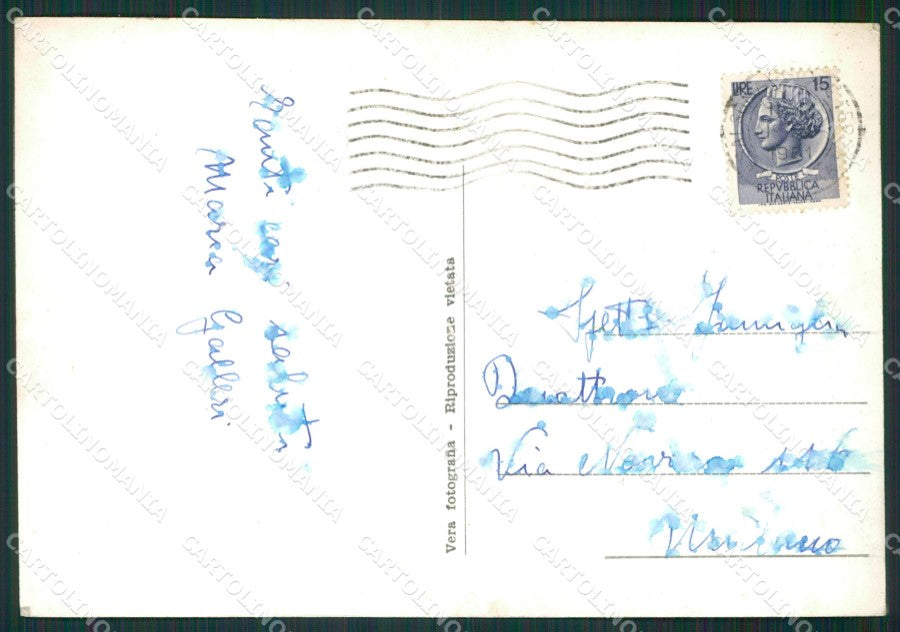 Tanti cari saluti
Maria Galleri
Vera fotografia - Riproduzione vietata
LIRE 15
1961
POSTE
REPVBBLICA
ITALIANA
Spett. Famiglia
Via
Milano
CARTOLINOMANIA